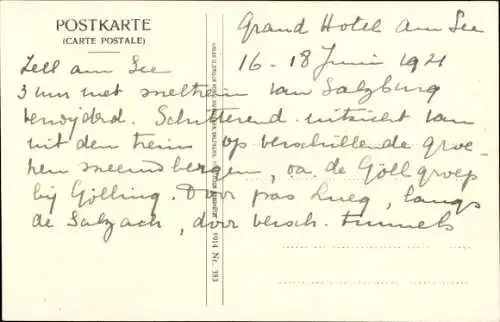 POSTKARTE
(CARTE POSTALE)
Grand Hotel Am See
16 - 18 Juni 1921
Zell am See
3 uur met sneltrein van Salzburg
verwijderd. Schitterend uitzicht van
uit den trein op verschillende groe-
pen sneeuwbergen, oa. de Göll groep
bij Golling. Door pas Lueg, langs
de Salzach, door versch. tunnels
1914 Nr. 333